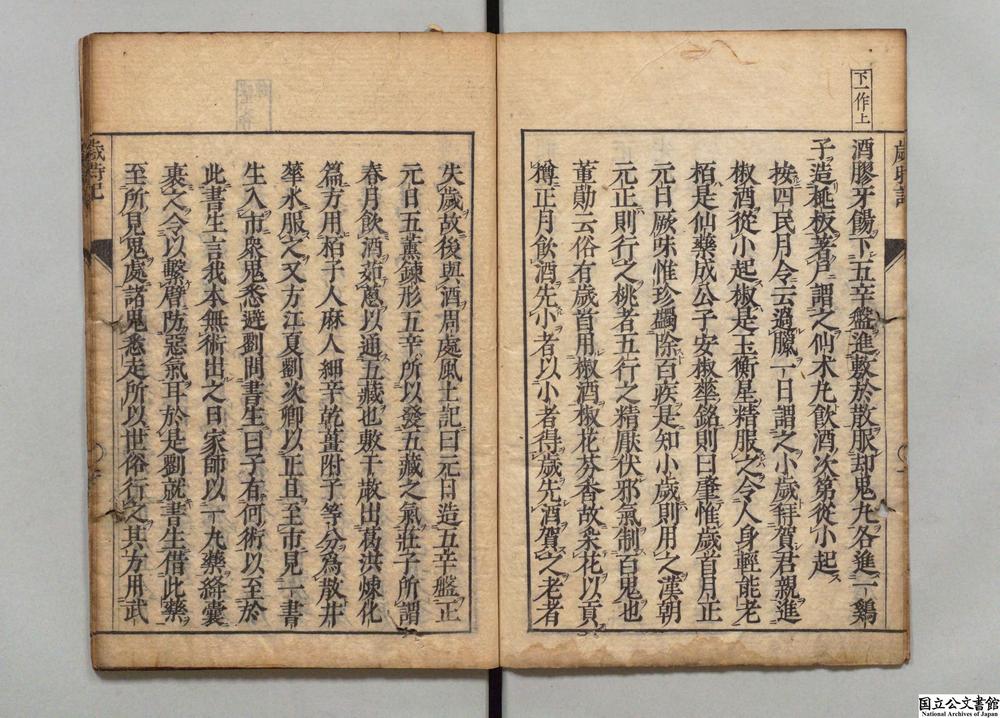 下一作上
歲時記
酒膠牙餳下五辛盤進敷於散服却鬼丸各進一鷄
子造桃板著戶謂之仙木凢飲酒次第從小起
桉四民月令云過臘一日謂之小歲拜賀君親進
椒酒從小起椒是玉衡星精服之令人身輕能老
栢是仙藥成公子安椒華銘則曰肇惟歲首月正
元日厥味惟珍蠲除百疾是知小歲則用之漢朝
元正則行之桃者五行之精厭伏邪氣制百鬼也
董勛云俗有歲首用椒酒椒花芬香故采花以貢
樽正月飲酒先小者以小者得歲先酒賀之老者
失歲故後與酒周處風土記曰元日造五辛盤正
元日五薰鍊形五辛所以發五藏之氣莊子所謂
春月飲酒茹蔥以通五藏也敷于散出葛洪煉化
篇方用柏子人麻人細辛乾薑附子等分為散井
華水服之又方江夏劉次卿以正旦至市見一書
生入市衆鬼悉避劉問書生曰子有何術以至於
此書生言我本無術出之日家師以一丸藥絳囊
裹之令以繫臂防惡氣耳於是劉就書生借此藥
至所見鬼處諸鬼悉走所以世俗行之其方用武
歲時記
国立公文書館
National Archives of Japan